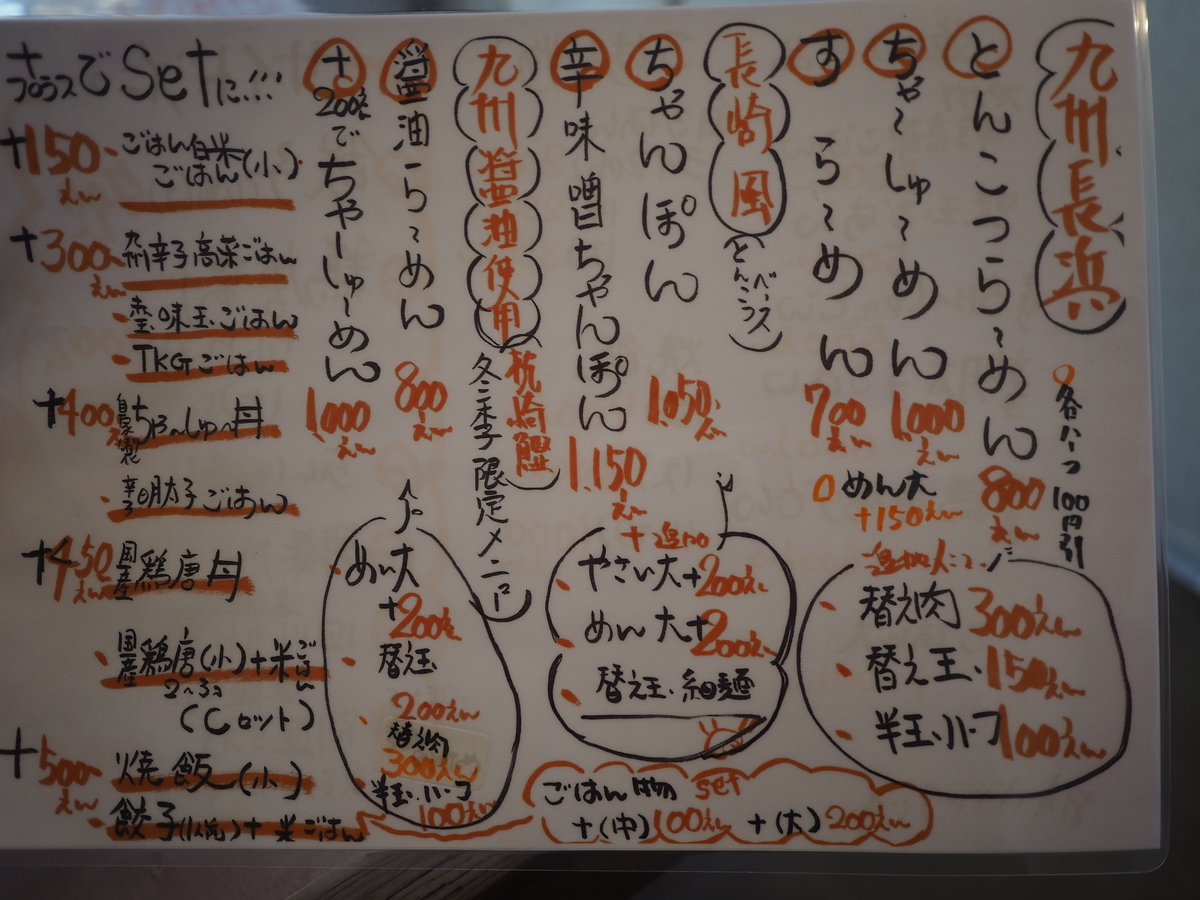 九州長浜
各ハーフ100円引
とんこつら〜めん
800えん
ちゃ〜しゅ〜めん
1000えん
すら〜めん
700えん
めん大
+150えん
替え肉 300えん
替え玉・150えん
半玉・ハーフ 100えん
長崎風
(とんこつベース)
ちゃんぽん
1,050えん
辛味噌ちゃんぽん
1,150えん
+追加
やさい大+200えん
めん大+200えん
替え玉・細麺
九州醤油使用
枕崎鰹
冬季限定メニュー
醤油ら〜めん
800えん
+200えんでちゃーしゅ〜めん
1000えん
めん大
+200えん
替え玉
200えん
替え肉
300えん
半玉・ハーフ
100えん
+プラスでSetに!!!
+150えん
ごはん白米
ごはん(小)
+300えん
九州辛子高菜ごはん
味玉ごはん
TKGごはん
+400えん
自家製ちゃ〜しゅ〜丼
辛子明太子ごはん
+450えん
国産鶏唐丼
国産鶏唐(小)+米ごはん
2〜3コ
(Cロット)
+500えん
焼飯(小)
餃子(小)+米ごはん
ごはん物 set
+(中)100えん +(大)200えん